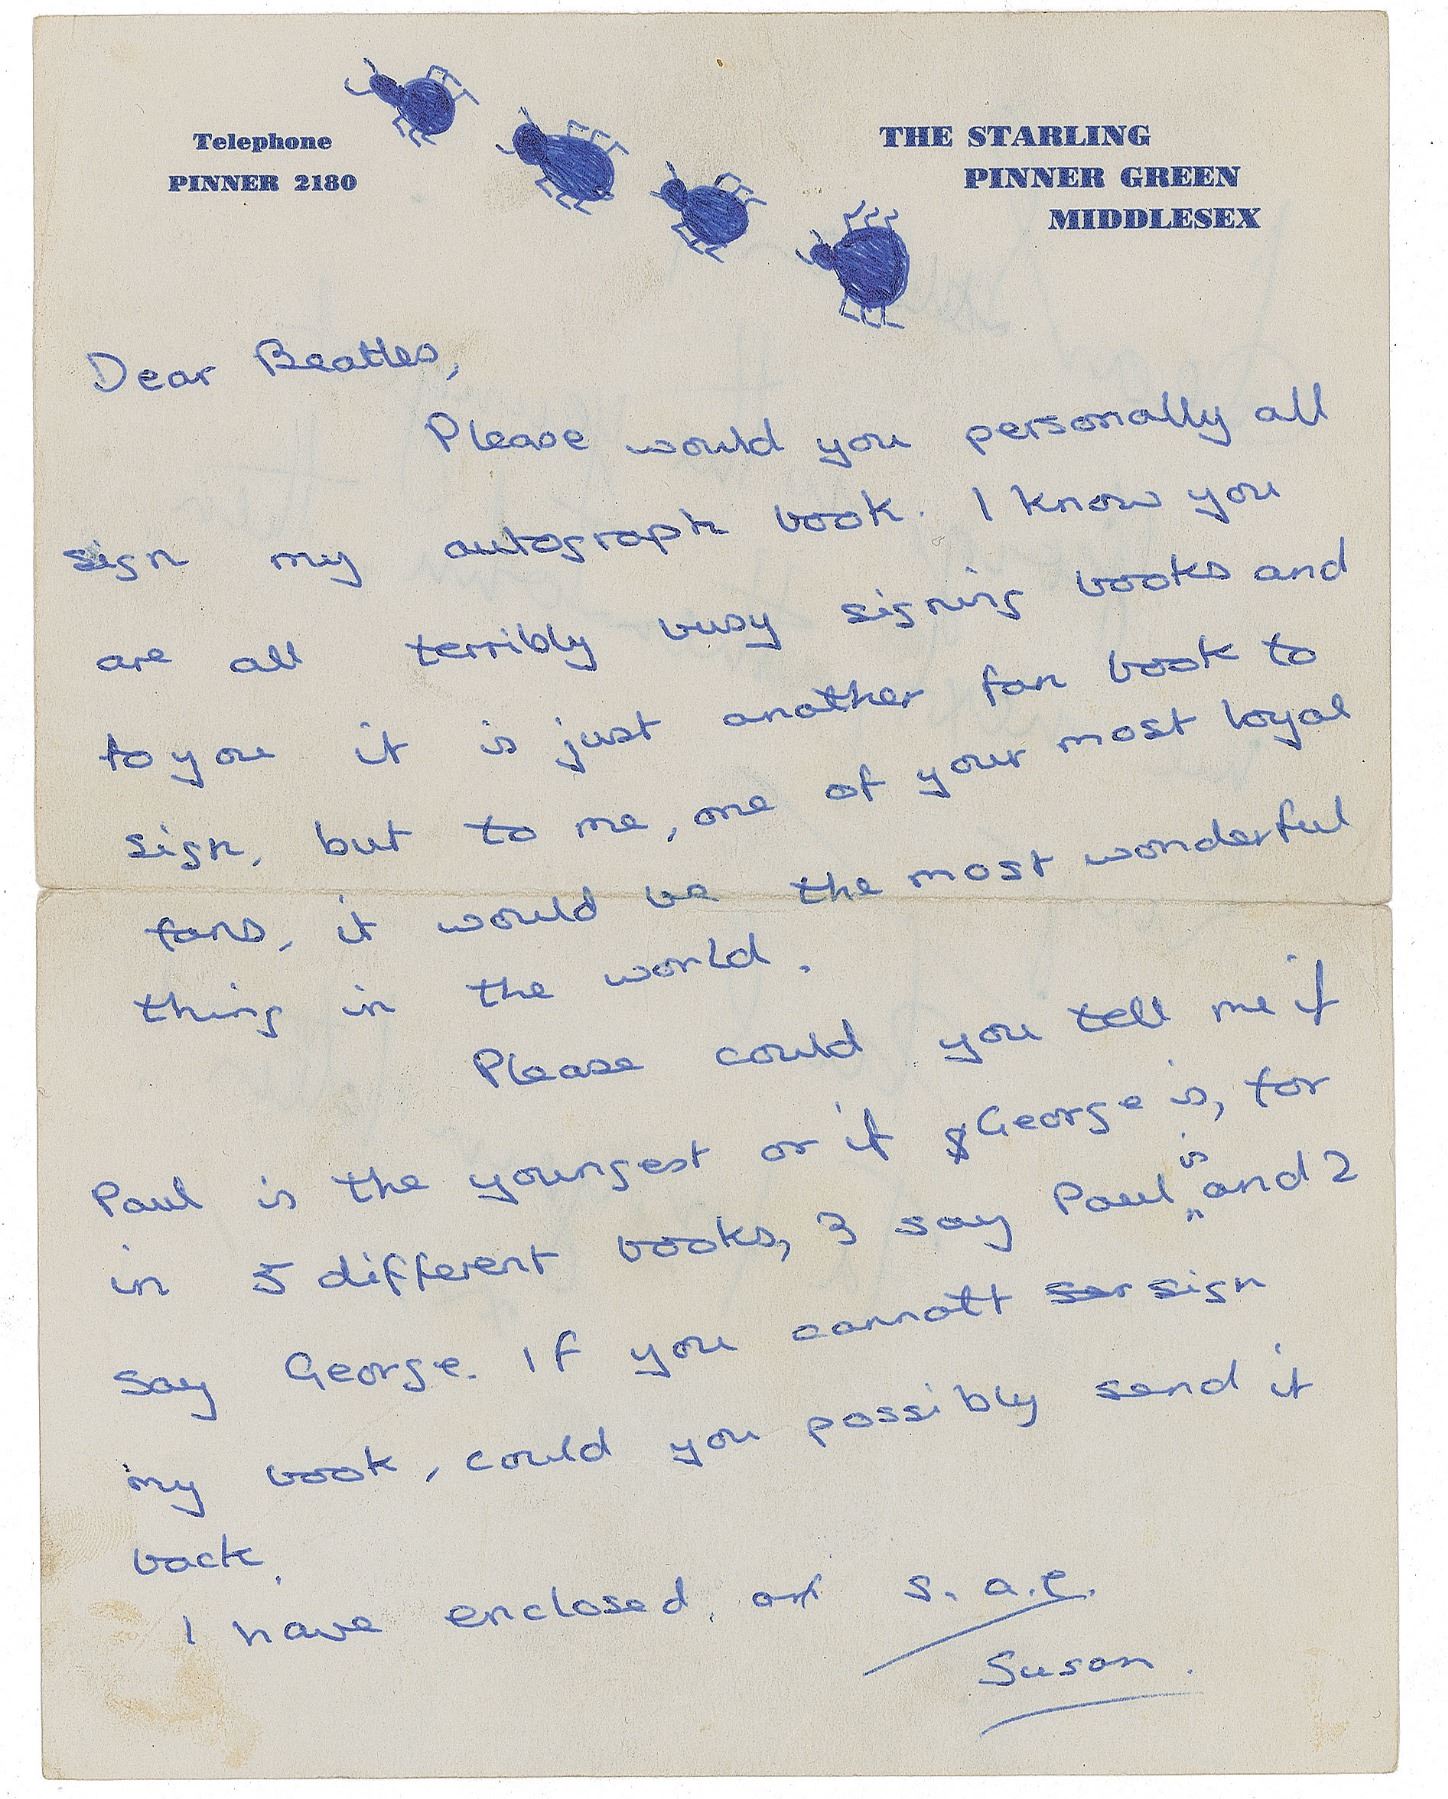 Telephone
PINNER 2180
THE STARLING
PINNER GREEN
MIDDLESEX
Dear Beatles,
Please would you personally all
sign my autograph book. I know you
are all terribly busy signing books and
to you it is just another fan book to
sign, but to me, one of your most loyal
fans, it would be the most wonderful
thing in the world.
Please could you tell me if
Paul is the youngest or if George is, for
in 5 different books, 3 say Paul is and 2
say George. If you cannott ser sign
my book, could you possibly send it
back.
I have enclosed an s.a.e.
Susan.